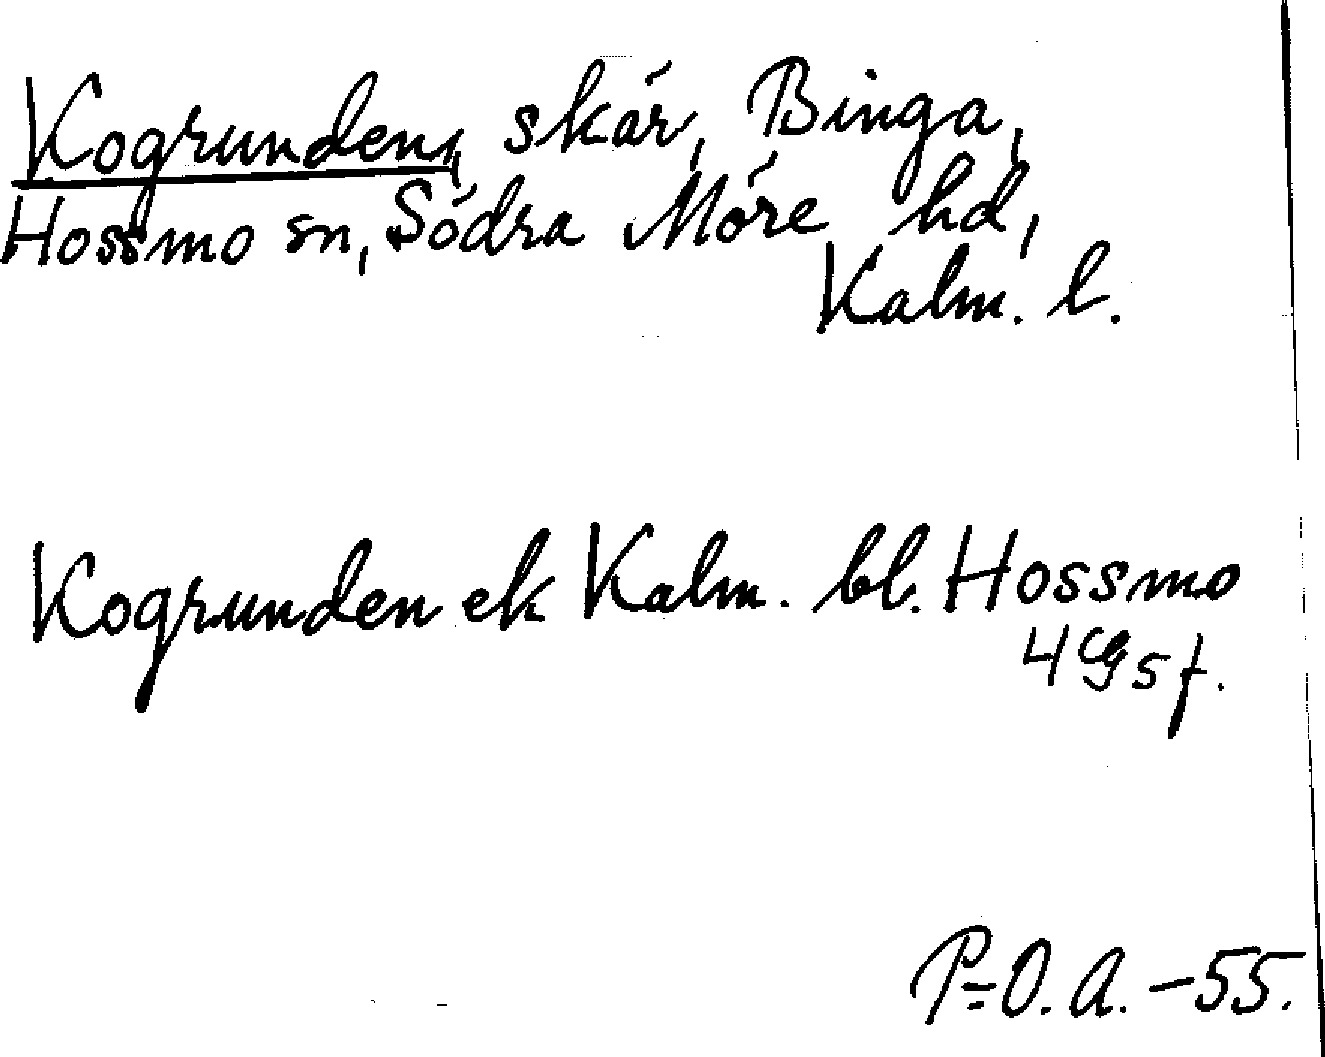 Kogrunden, skär, Binga,
Hossmo sn, Södra Möre hd,
Kalm. l.
Kogrunden ek Kalm. bl. Hossmo
4 g 5 f.
P-O. A. -55.